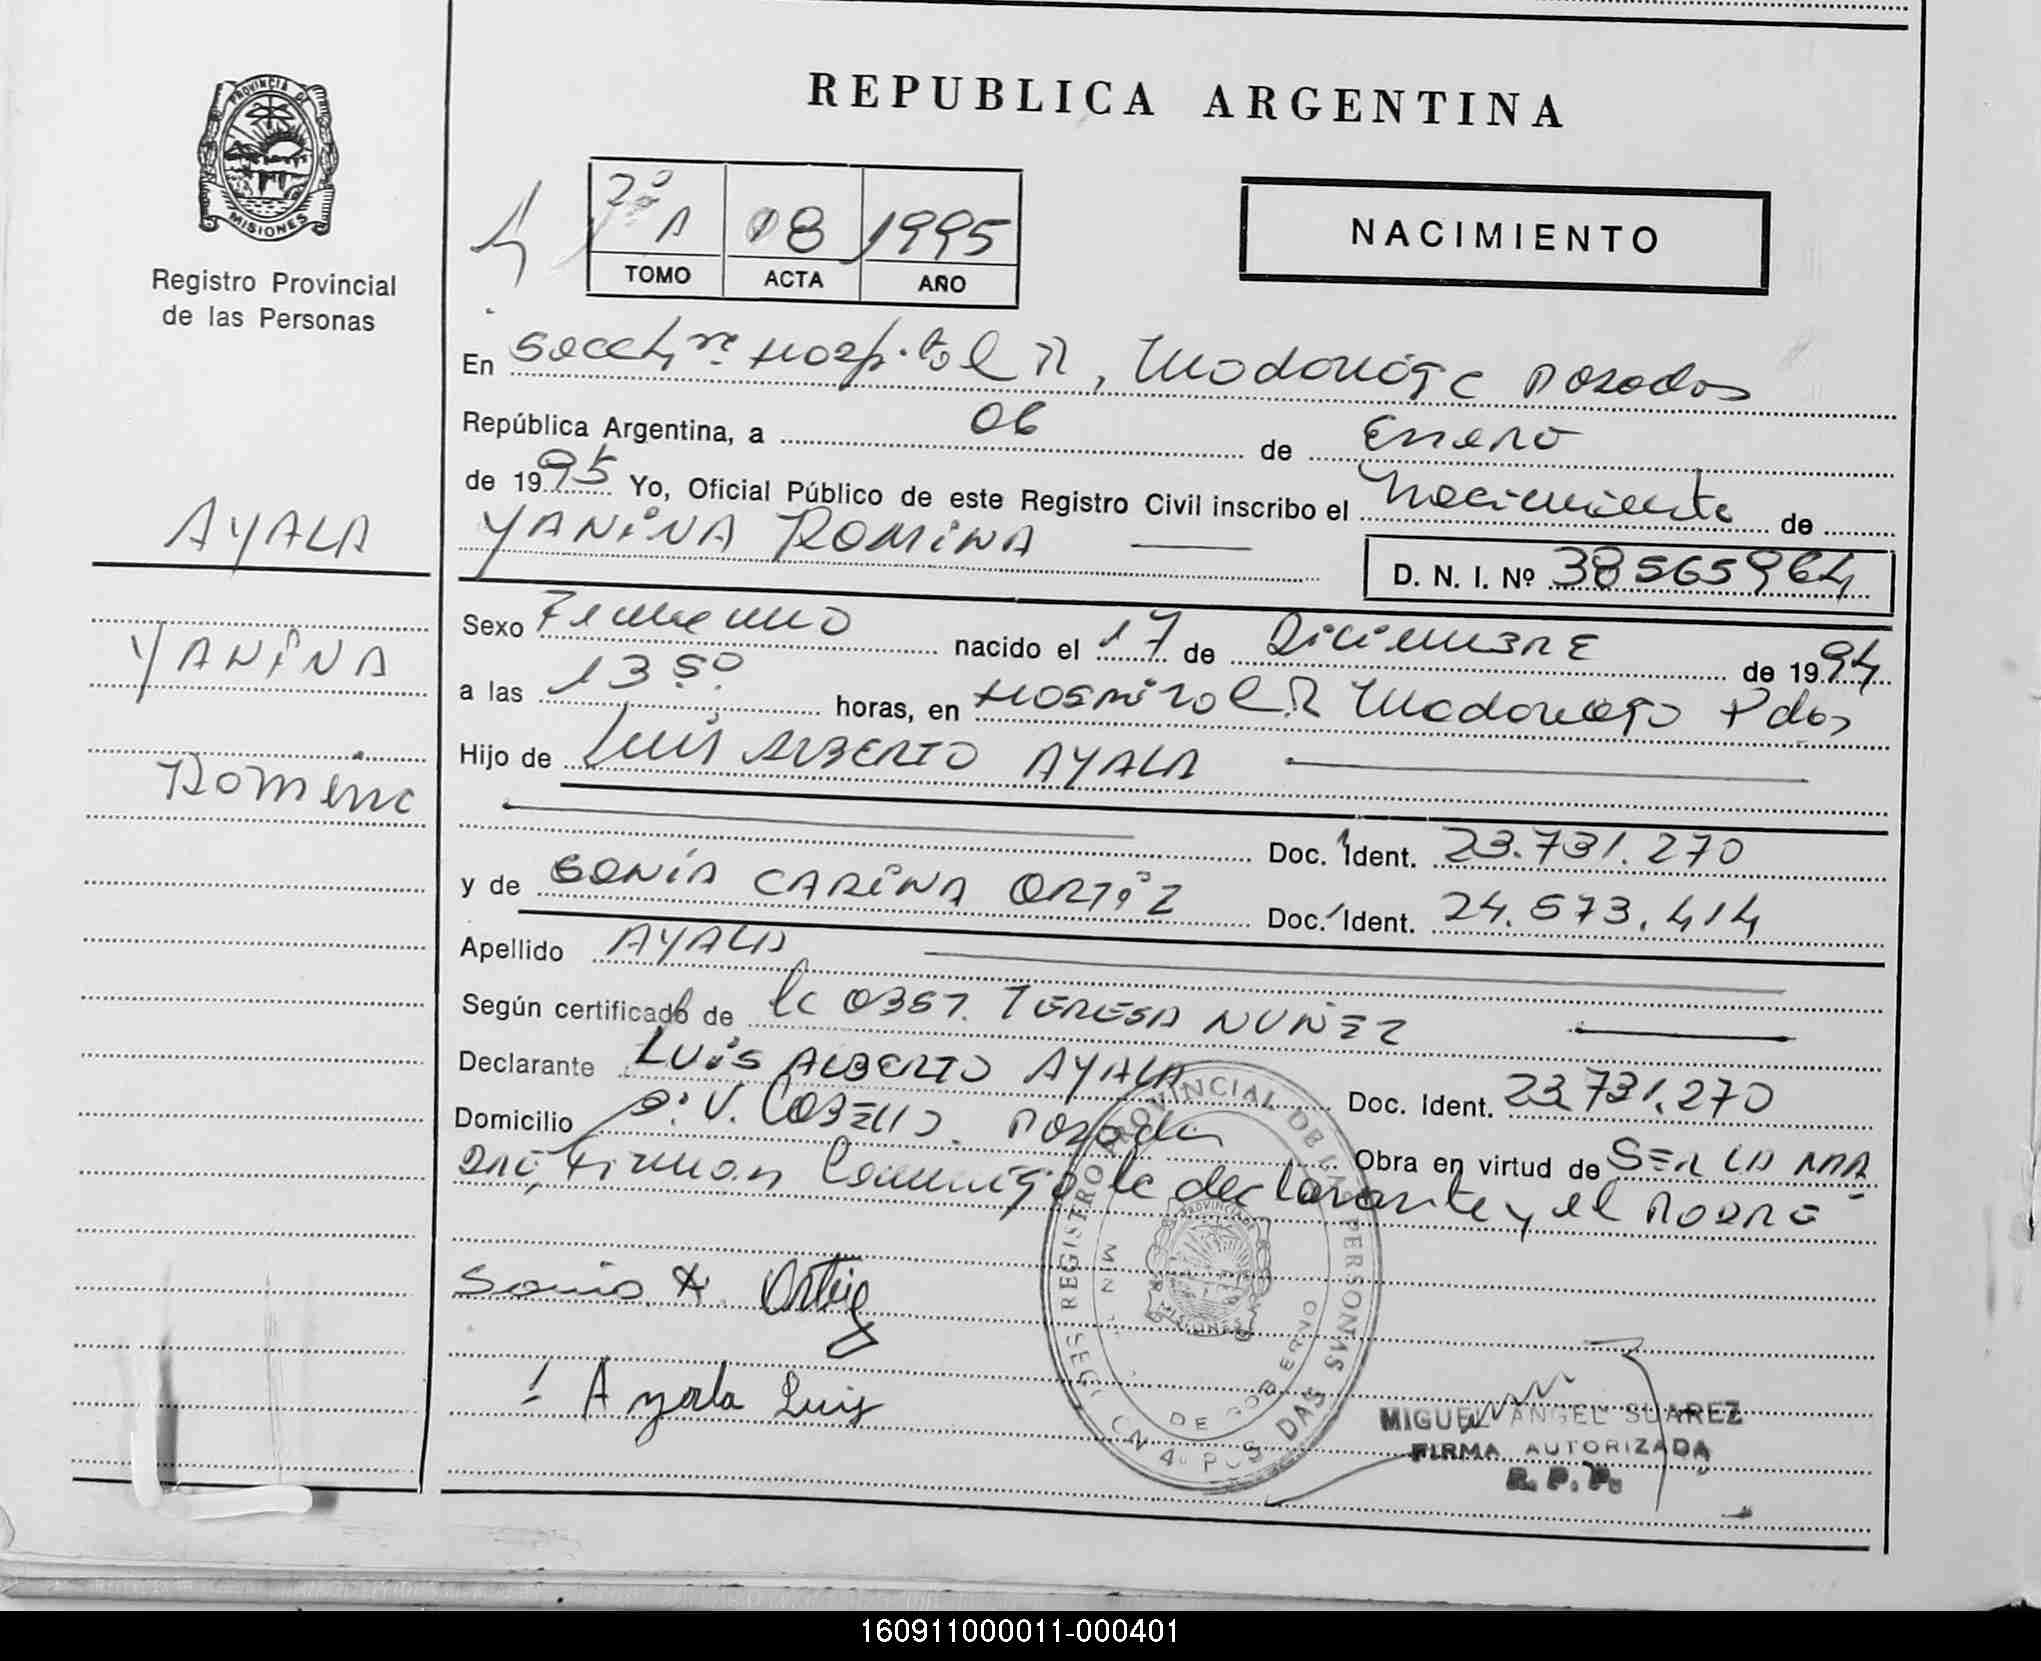 PROVINCIA DE
MISIONES
Registro Provincial
de las Personas
AYALA
YANINA
Romina
REPUBLICA ARGENTINA
2º A 08 1995
TOMO ACTA AÑO
NACIMIENTO
En Secc 4 Hospital R. Madariaga Posadas
República Argentina, a 06 de Enero
de 1995 Yo, Oficial Público de este Registro Civil inscribo el Nacimiento de
YANINA ROMINA
D. N. I. Nº 38565964
Sexo Femenino nacido el 17 de Diciembre de 1994
a las 13 50 horas, en Hospital R Madariaga Pdas
Hijo de Luis ALBERTO AYALA
Doc. Ident. 23.731.270
y de SONIA CARINA ORTIZ Doc. Ident. 24.573.414
Apellido AYALA
Según certificado de la OBST. TERESA NUÑEZ
Declarante LUIS ALBERTO AYALA Doc. Ident. 23.731.270
Domicilio Posadas Obra en virtud de SER LA MA
DRE, Firman Conmigo la declarante y el PADRE
Sonia Ortiz
Ayala Luis
REGISTRO PROVINCIAL DE LAS PERSONAS
DE GOBIERNO
PROVINCIA DE
MISIONES
MIGUEL ANGEL SUAREZ
FIRMA AUTORIZADA
R. P. P.
160911000011-000401